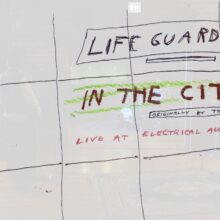 LIFE GUARD
IN THE CIT
[ORIGINALLY BY TH
LIVE AT ELECTRICAL AU